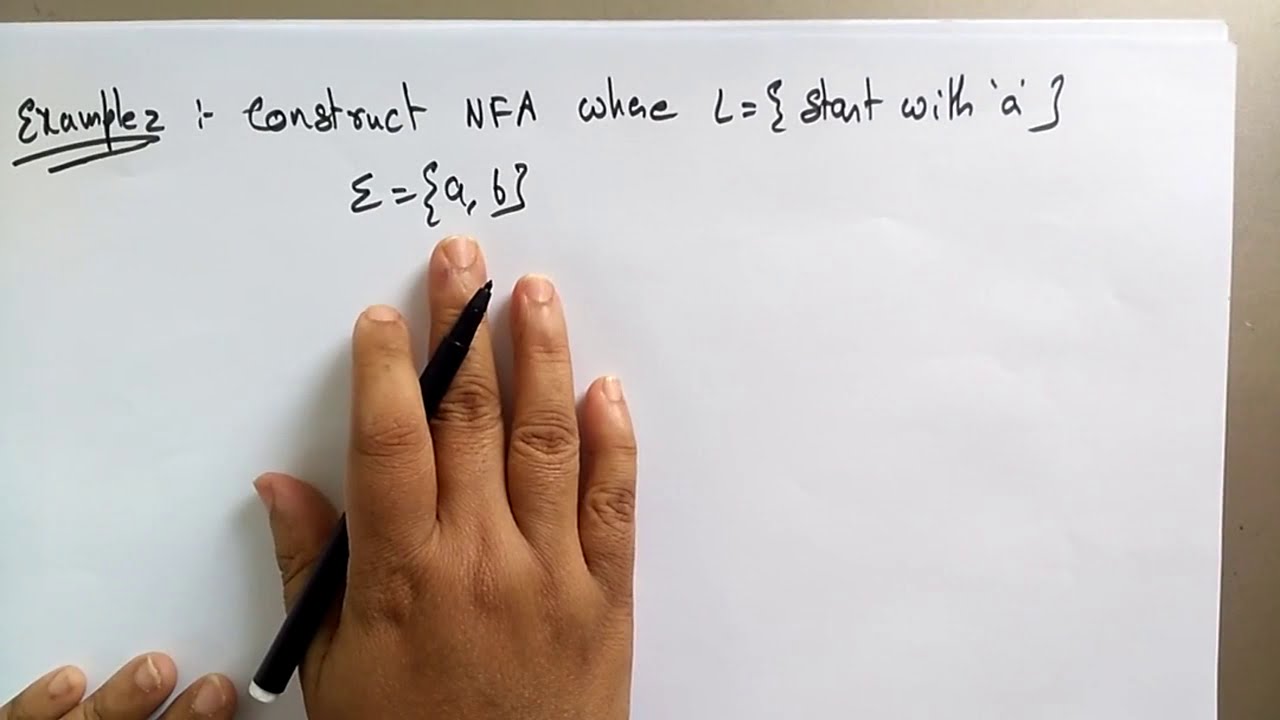 Example2 :- Construct NFA where L={ start with 'a' }
Σ={a, b}